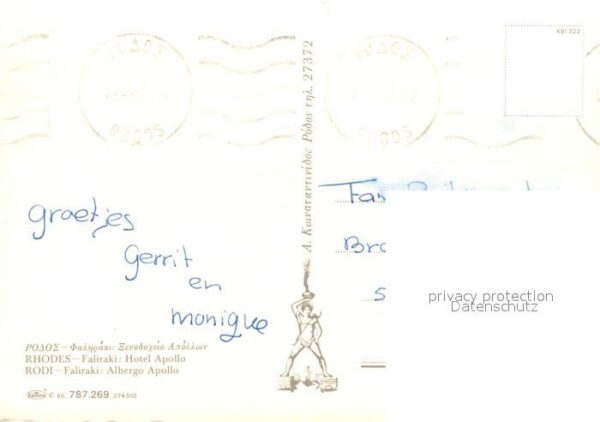 ΡΟΔΟΣ
RODOS
ΡΟΔΟΣ
RODOS
491 322
Α. Κωνσταντινίδου Ρόδος τηλ. 27372
groetjes
gerrit
en
monique
Fam
Bro
S
privacy protection
Datenschutz
ΡΟΔΟΣ – Φαληράκι: Ξενοδοχείο Απόλλων
RHODES – Faliraki: Hotel Apollo
RODI – Faliraki: Albergo Apollo
© 55 787.269 274510